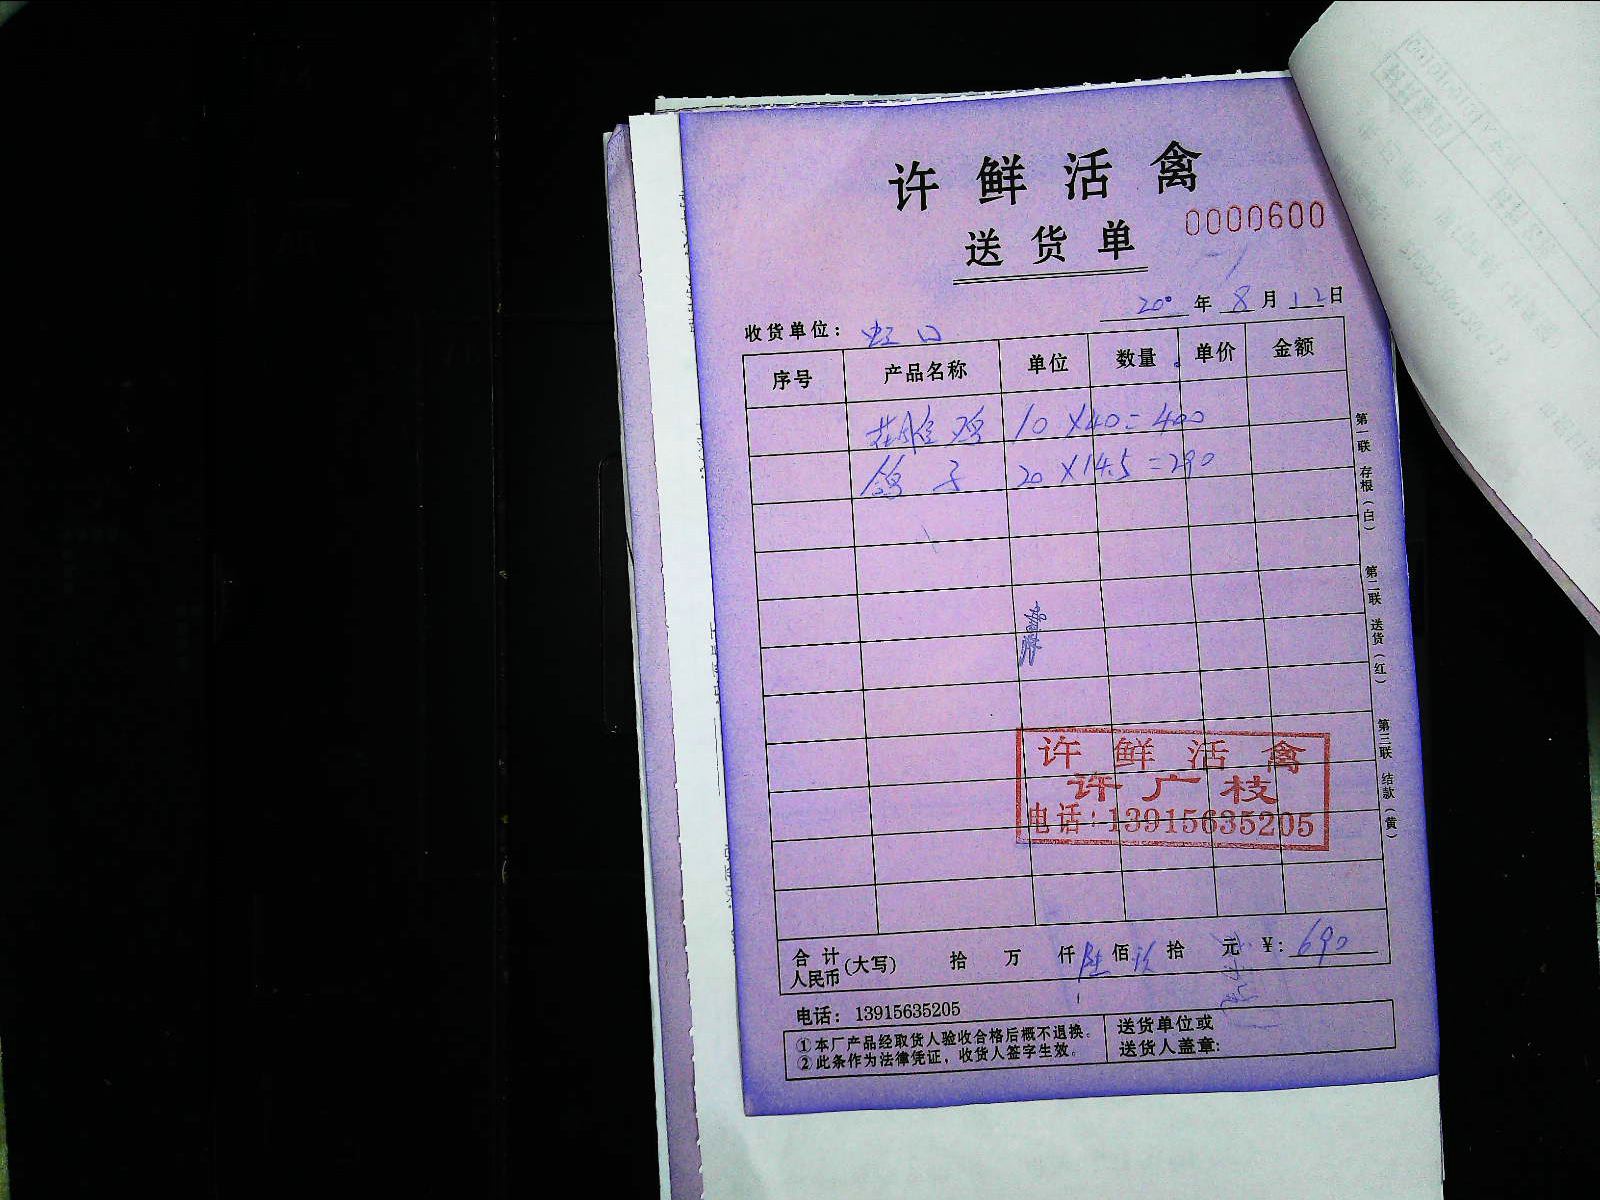 许鲜活禽
送货单
0000600
20 年 8 月 12 日
收货单位: 虹口
序号 产品名称 单位 数量 单价 金额
鸡 10 X40=400
鸽子 20 X14.5=290
第一联 存根(白)
第二联 送货(红)
第三联 结款(黄)
许鲜活禽
许广枝
电话:13915635205
合计人民币(大写) 拾 万 仟 陆 佰 玖 拾 元 ¥: 690
电话: 13915635205
①本厂产品经取货人验收合格后概不退换。
②此条作为法律凭证,收货人签字生效。
送货单位或
送货人盖章: